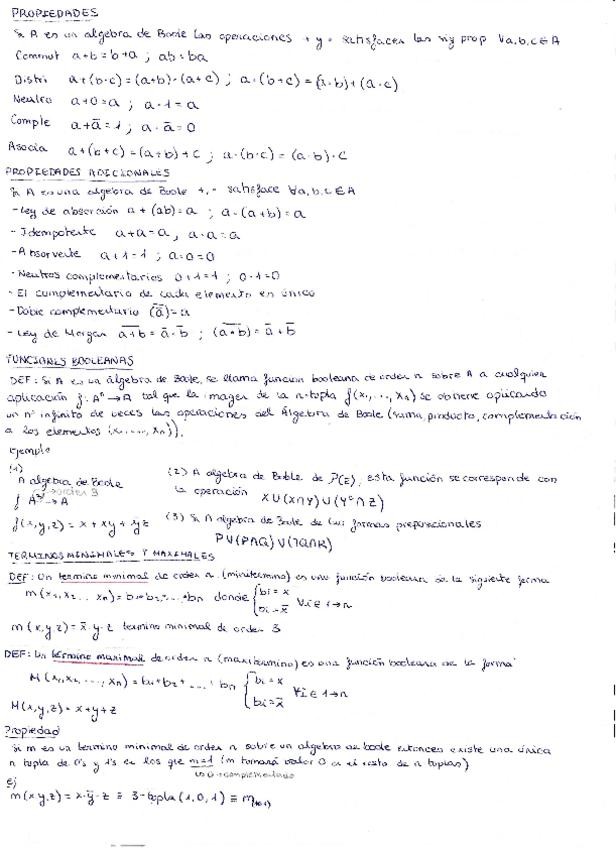 PROPIEDADES
Si A es un algebra de Boole las operaciones + y · satisfacen las sig prop ∀a,b,c∈A
Conmut a+b=b+a ; ab=ba
Distri a+(b·c)=(a+b)·(a+c) ; a·(b+c)=(a·b)+(a·c)
Neutro a+0=a ; a·1=a
Comple a+ā=1 ; a·ā=0
Asocia a+(b+c)=(a+b)+c ; a·(b·c)=(a·b)·c
PROPIEDADES ADICIONALES
Si A es una algebra de Boole +,· satisface ∀a,b,c∈A
-Ley de absorción a+(ab)=a ; a·(a+b)=a
-Idempotente a+a=a, a·a=a
-Absorvente a+1=1 ; a·0=0
-Neutros complementarios 0+1=1 ; 0·1=0
-El complementario de cada elemento es único
-Doble complementario (a̿)=a
-Ley de Morgan \overline{a+b}=ā·b̄ ; (\overline{a·b})=ā+b̄
FUNCIONES BOOLEANAS
DEF: Si A es un álgebra de Boole, se llama función booleana de orden n sobre A a cualquier
aplicación f: Aⁿ→A tal que la imagen de la n-tupla f(x₁,...,xₙ) se obtiene aplicando
un nº infinito de veces las operaciones del Álgebra de Boole (suma, producto, complementación
a los elementos {x₁,...,xₙ}).
Ejemplo
(1)
A algebra de Boole
→orden 3
f A³→A
f(x,y,z)=x+xy+ȳz
(2) A algebra de Boole de P(E), esta función se corresponde con
la operación X∪(X∩Y)∪(Yᶜ∩Z)
(3) Si A algebra de Boole de las formas proposicionales
P∨(P∧Q)∨(¬Q∧R)
TERMINOS MINIMALES Y MAXIMALES
DEF: Un termino minimal de orden n (minitermino) es una función booleana de la siguiente forma
m(x₁,x₂...xₙ)=b₁·b₂·...·bₙ donde {bi=x bi=x̄ ∀i∈1→n
m(x,y,z)=x̄·y·z termino minimal de orden 3
DEF: Un término maximal de orden n (maxitermino) es una función booleana de la forma
M(x₁,x₂,...,xₙ)=b₁+b₂+...+bn {bi=x bi=x̄ ∀i∈1→n
M(x,y,z)=x+y+z
Propiedad
Si m es un termino minimal de orden n sobre un algebra de boole entonces existe una única
n tupla de 0's y 1's en los que m=1 (m tomará valor 0 en el resto de n tuplas)
↳0→complementado
ej
m(x,y,z)=x·ȳ·z ≡ 3-tupla(1,0,1) ≡ m₍₁₀₁₎